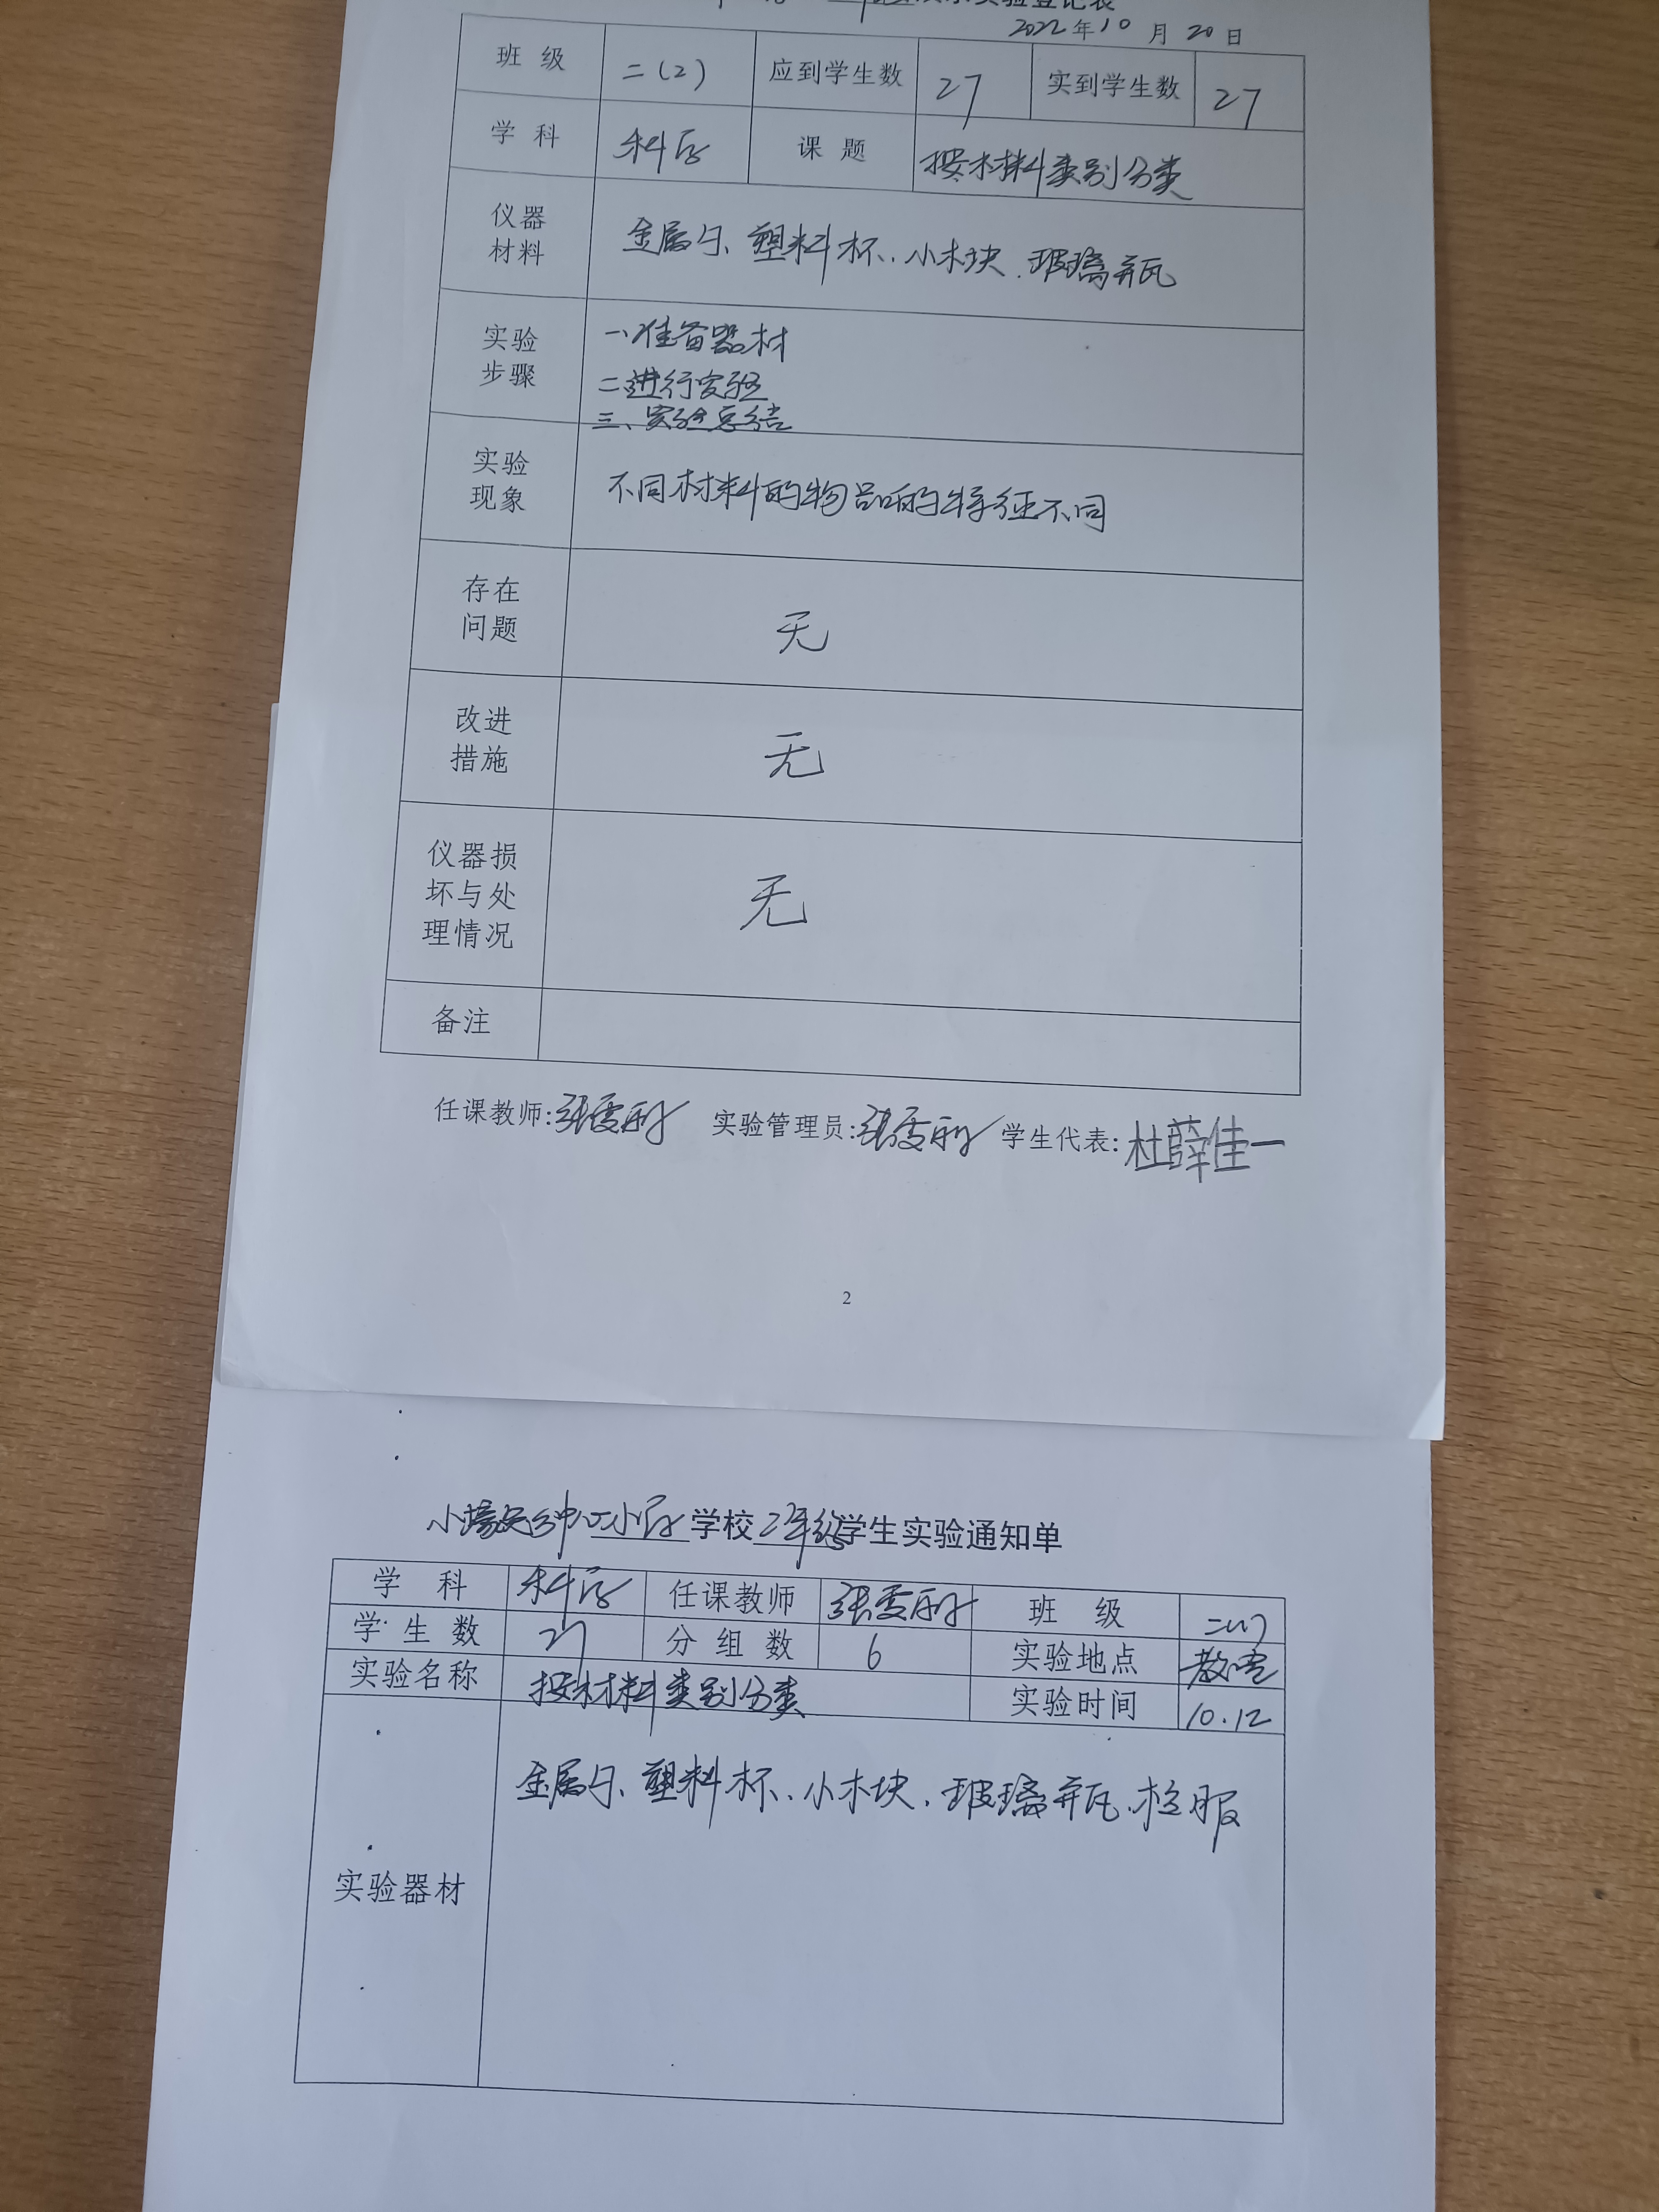 实验登记表
2022年10月20日
班级 二(2) 应到学生数 27 实到学生数 27
学科 科学 课题 按材料类别分类
仪器材料 金属勺、塑料杯、小木块、玻璃瓶
实验步骤 一、准备器材
二、进行实验
三、实验总结
实验现象 不同材料的物品的特征不同
存在问题 无
改进措施 无
仪器损坏与处理情况 无
备注
任课教师: 实验管理员: 学生代表:杜薛佳一
2
中心小学学校二年级学生实验通知单
学科 科学 任课教师 班级 二(1)
学生数 27 分组数 6 实验地点 教室
实验名称 按材料类别分类 实验时间 10.12
实验器材 金属勺、塑料杯、小木块、玻璃瓶、校服